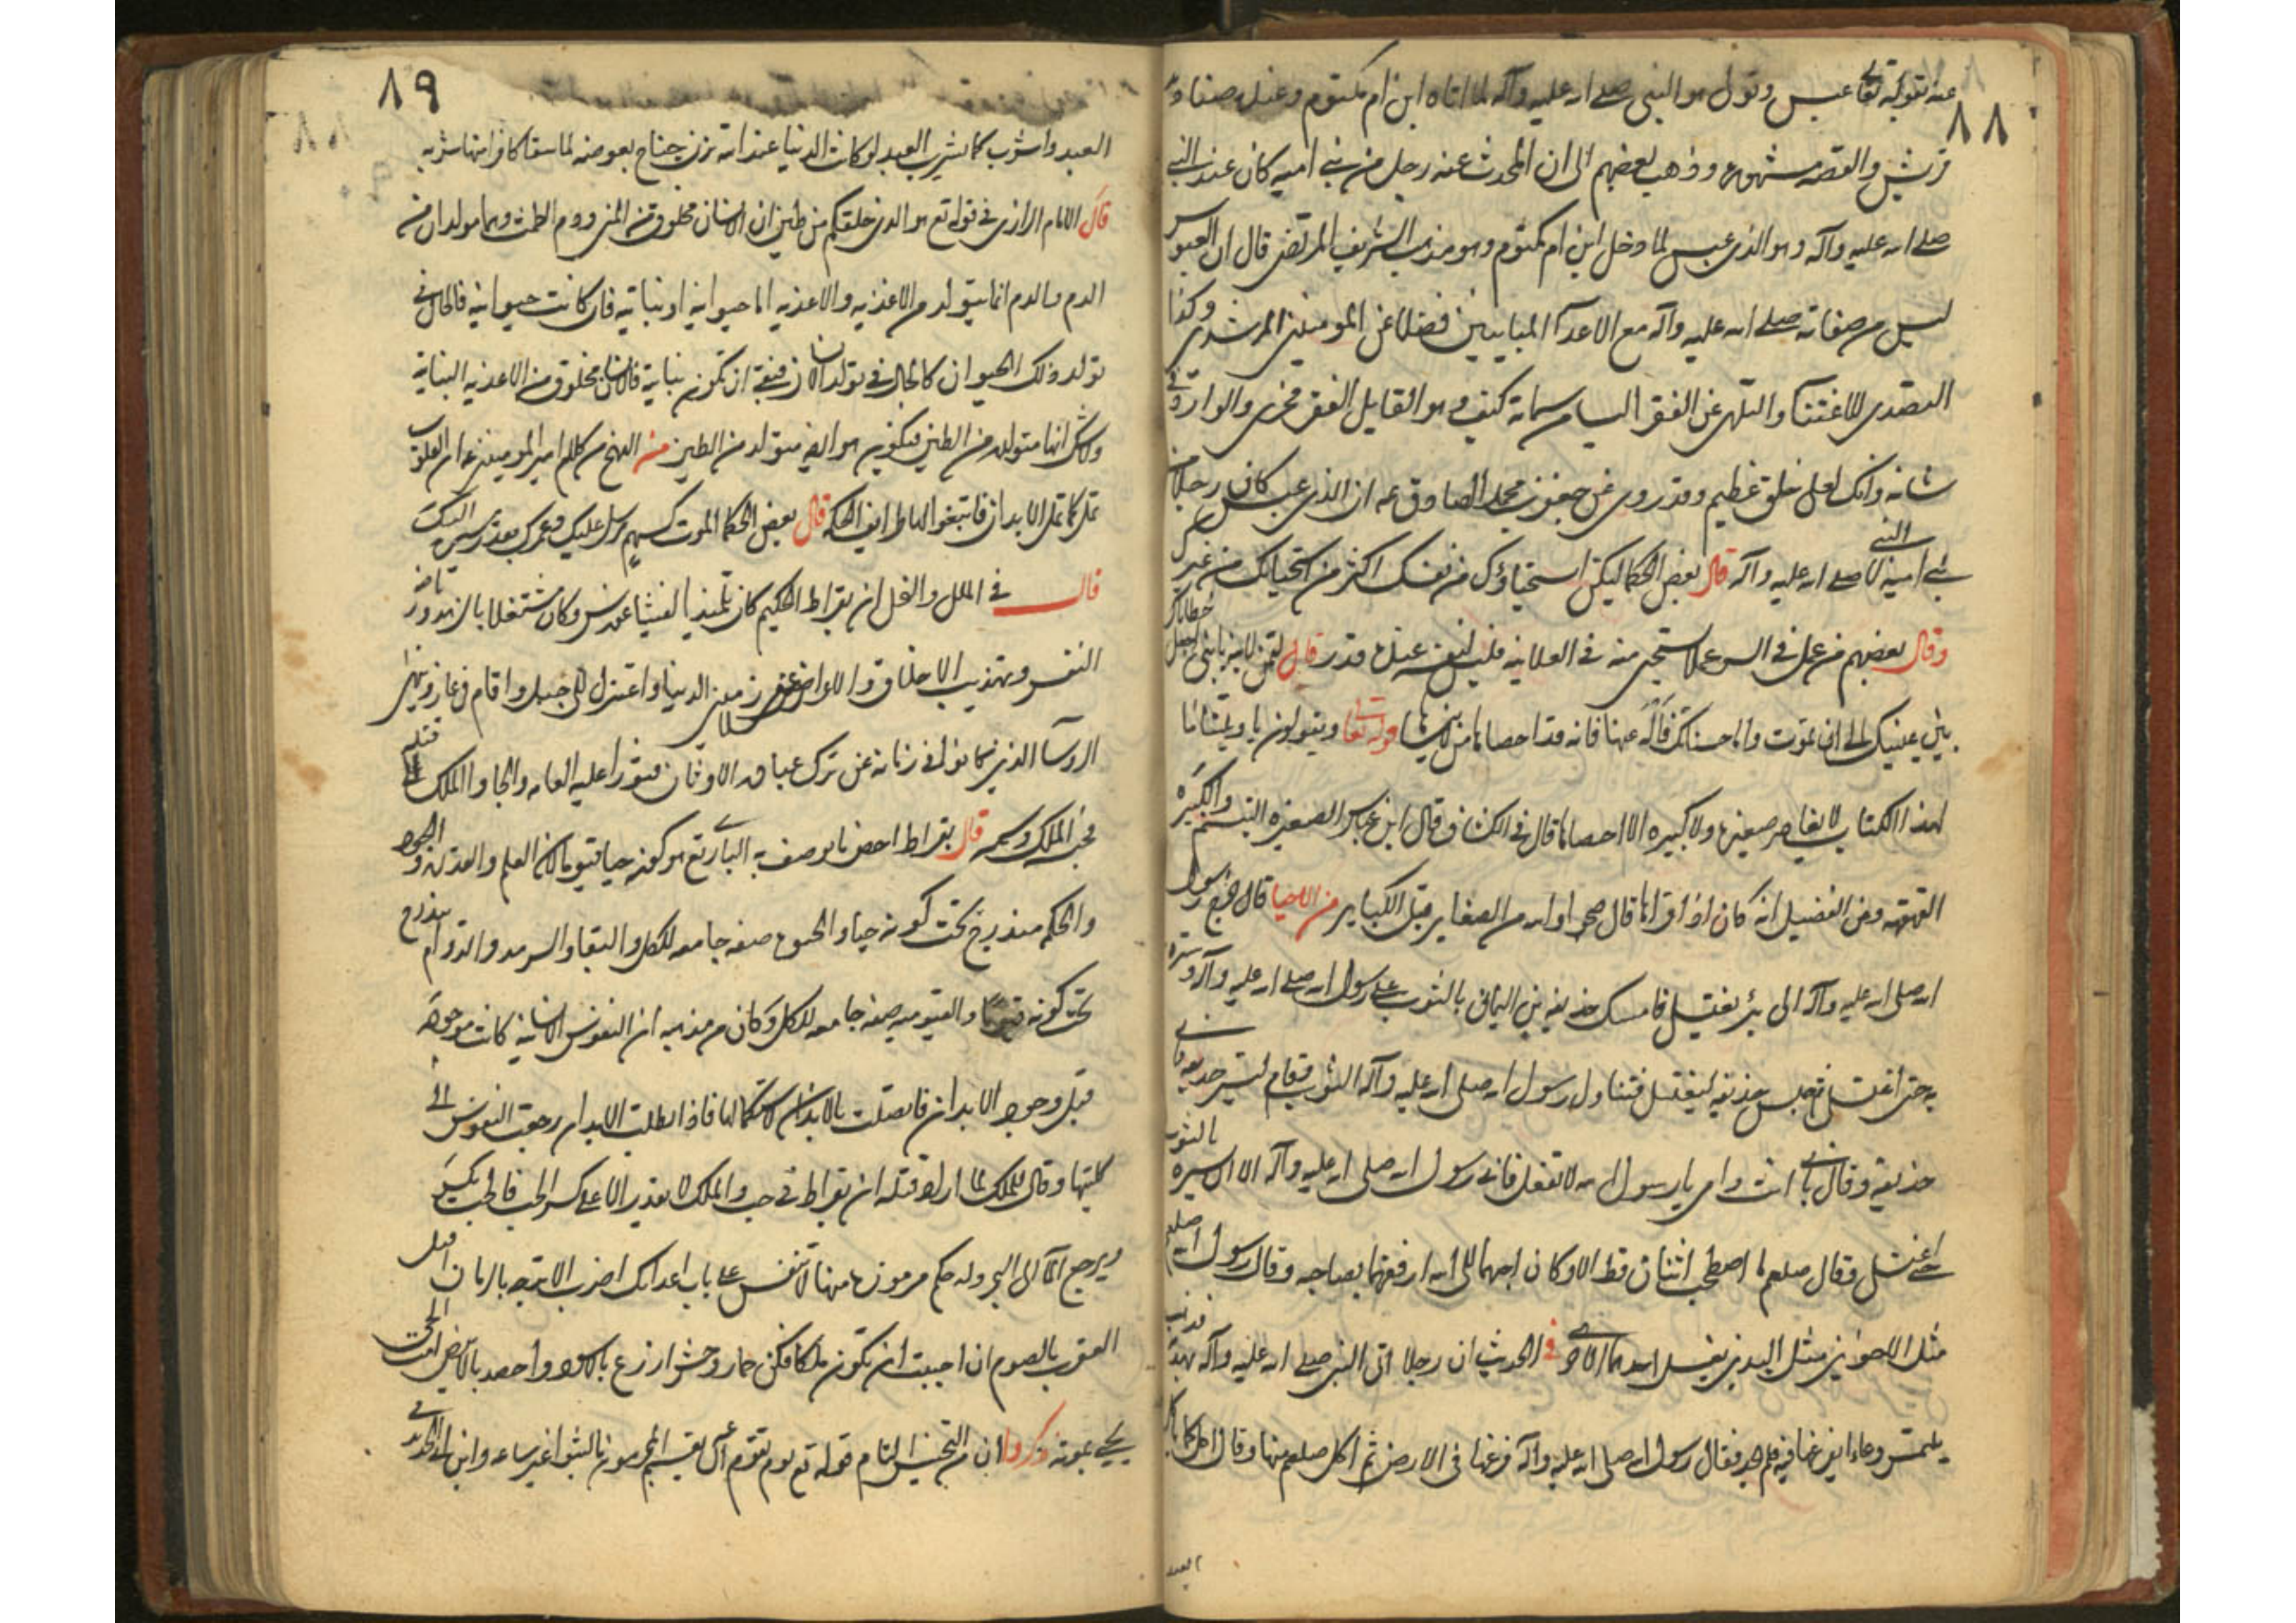 ٨٨
عنه بقوله تعالى عبس وتولى هو النبي صلى الله عليه وآله لما اتاه ابن ام مكتوم وعنده صناديد
قريش والقصه مشهوره وذهب بعضهم الى ان المحدث عنه رجل من بني اميه كان عند النبي
صلى الله عليه وآله وهو الذي عبس لما دخل ابن ام مكتوم وهو مذهب الشريف المرتضى قال ان العبوس
ليس من صفاته صلى الله عليه وآله مع الاعدآ المباينين فضلا عن المومنين المرشدين وكذا
التصدي للاغنيا والتلهي عن الفقرا ليسا من سماته كيف وهو القايل الفقر فخري والوارد في
شانه وانك لعلى خلق عظيم وقد روي عن جعفر بن محمد الصادق عه ان الذي عبس كان رجلا من
بني اميه لا النبي صلى الله عليه وآله قال بعض الحكما ليكن استحياؤك من نفسك اكثر من استحيائك من غيرك
وقال بعضهم من عمل في السر عملا يستحي منه في العلانيه فليس لنفسه عنده قدر قال لقمن لابنه يا بني اجعل خطاياك
بين عينيك الى ان تموت واما حسناتك فاله عنها فانه قد احصاها من لا ينساها قوله تعالى ويقولون يا ويلتنا ما
لهذا الكتاب لا يغادر صغيره ولا كبيره الا احصاها قال في الكشاف قال ابن عباس الصغيره التبسم والكبيره
القهقهه وعن الفضيل انه كان اذا قراها قال ضجوا والله من الصغاير قبل الكباير من الاحيا قال خرج رسول
الله صلى الله عليه وآله الى بئر يغتسل فامسك حذيفه بن اليماني بالثوب على رسول الله صلى الله عليه وآله وستره
به حتى اغتسل ثم جلس حذيفه ليغتسل فتناول رسول الله صلى الله عليه وآله الثوب وقام يستر حذيفه فابى
حذيفه وقال بابي انت وامي يا رسول الله لا تفعل فابى رسول الله صلى الله عليه وآله الا ان يستره بالثوب
حتى اغتسل وقال صلعم ما اصطحب اثنان قط الا وكان احبهما الى الله ارفقهما بصاحبه وقال رسول الله صلعم
مثل الاخوين مثل اليدين يغسل احدهما الاخرى في الحديث ان رجلا اتى النبي صلى الله عليه وآله بهديه فذهب
يلتمس وعاء يفرغها فيه فلم يجد فقال رسول الله صلى الله عليه وآله فرغها في الارض ثم اكل صلعم منها وقال اكل كما ياكل
العبد
٨٩
العبد واشرب كما يشرب العبد لو كانت الدنيا عند الله تزن جناح بعوضه لما سقا كافرا منها شربه
قال الامام الرازي في قوله تع هو الذي خلقكم من طين ان الانسان مخلوق من المني ودم الطمث وهما مولدان من
الدم والدم انما يتولد من الاغذيه والاغذيه اما حيوانيه او نباتيه فان كانت حيوانيه فالحال في
تولد ذلك الحيوان كالحال في تولد الانسان فبقي ان تكون نباتية فالانسان مخلوق من الاغذيه النباتية
ولا شك انها متولده من الطين فيكون هو ايضا متولد من الطين من النهج من كلام امير المومنين عه ان القلوب
تمل كما تمل الابدان فابتغوا لها طرايف الحكم قال بعض الحكما الموت كسهم مرسل عليك وعمرك بقدر سيره اليك
قال في الملل والنحل ان بقراط الحكيم كان تلميذا لفيثاغورس وكان مشتغلا بالزهد ورياضه
النفس وتهذيب الاخلاق والاعراض عن ملاذ الدنيا واعتزل الى جبل واقام في غار ونهى
الروسآ الذين كانوا في زمانه عن ترك عبادة الاوثان فثوروا عليه العامه والجاوا الملك الى قتله
فحبسه الملك وسمه قال بقراط اخص ما يوصف به الباري تع هو كونه حيا قيوما لان العلم والقدرة والجود
والحكم مندرج تحت كونه حيا والحيوة صفه جامعه للكل والبقا والسرمد والدوام مندرج
تحت كونه قيوما والقيوميه صفه جامعه للكل وكان من مذهبه ان النفوس الانسانية كانت موجودة
قبل وجود الابدان فاتصلت بالابدان لاستكمالها فاذا بطلت الابدان رجعت النفوس الى
كليتها وقال للملك لما اراد قتله ان بقراط في حب والملك لا يقدر الا على كسر الحب فالحب يكسر
ويرجع المآ الى البحر وله حكم مرموزه منها لا تنعس على باب اعدائك اضرب الاترجه بالرمان اقتل
العقرب بالصوم ان احببت ان تكون ملكا فكن حمار وحش ازرع بالاسود واحصد بالابيض امت الحي
يحيى بموته ذكروا ان من التجنيس التام قوله تع يوم تقوم الساعه يقسم المجرمون ما لبثوا غير ساعه وابن ابي الحديد في